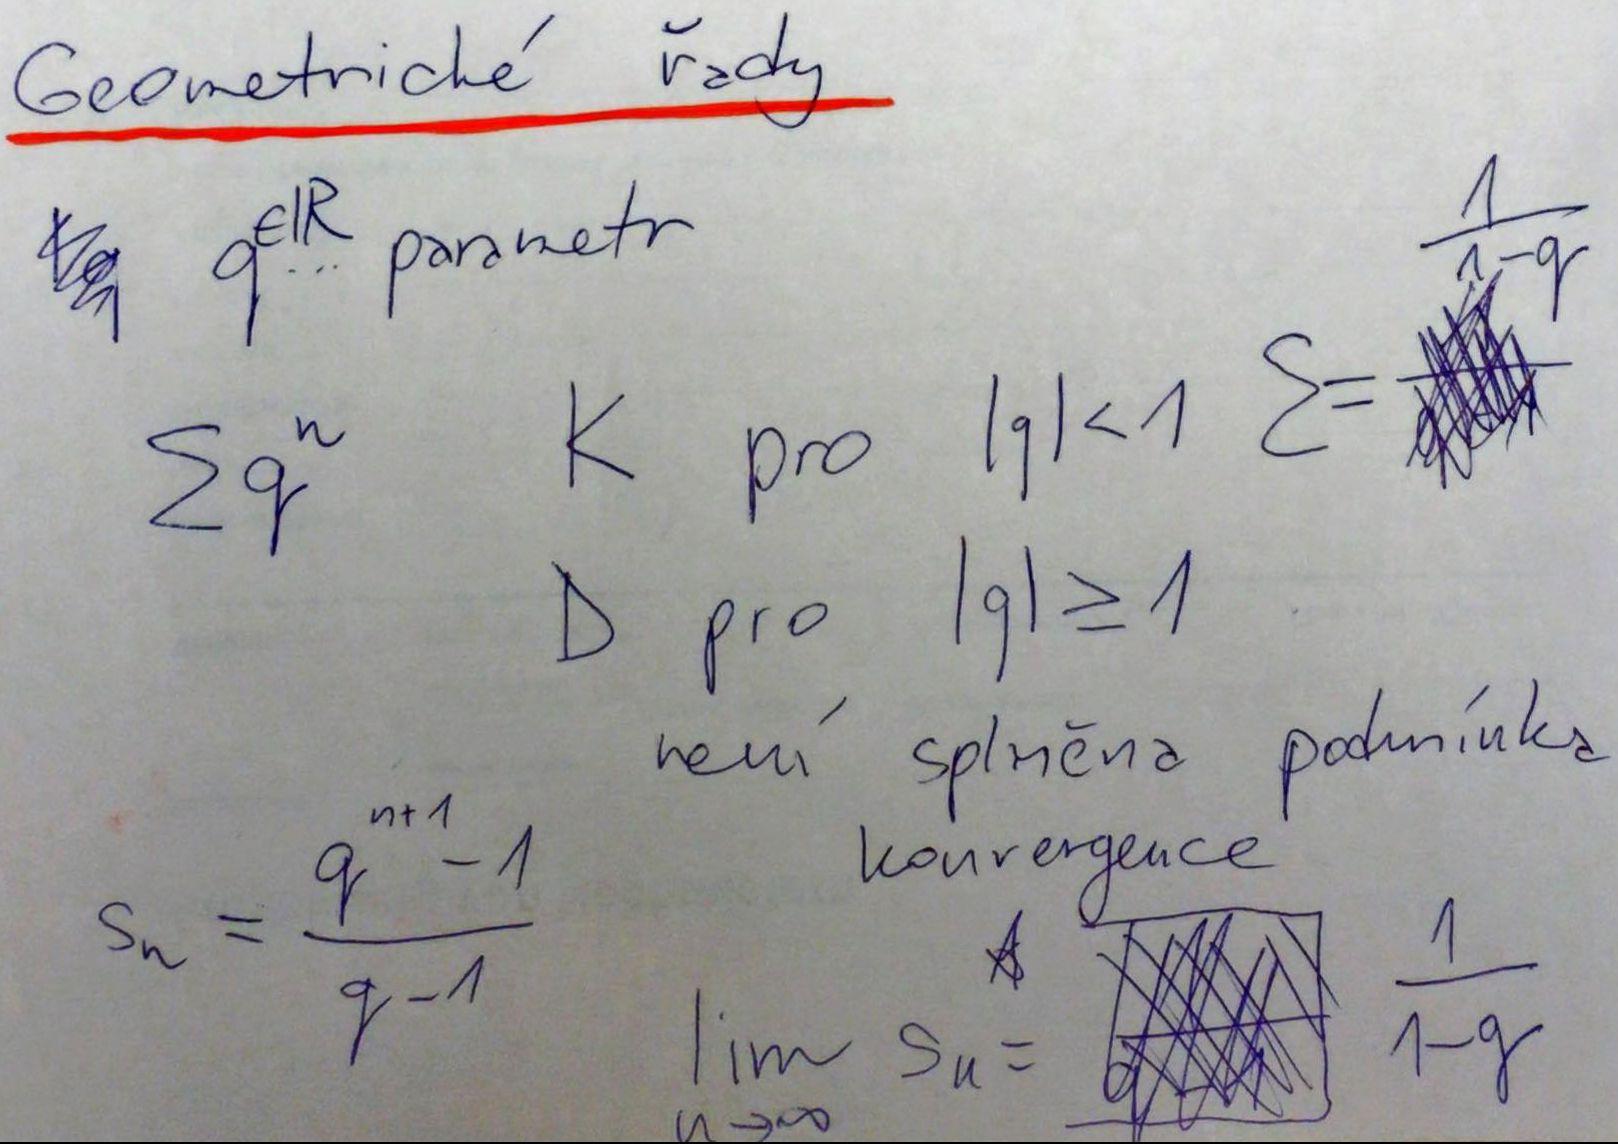 Geometrické řady
q ∈ℝ ... parametr
∑ qⁿ K pro |q| < 1 ∑ = 1/(1-q)
D pro |q| ≥ 1
není splněna podmínka
konvergence
sₙ = (qⁿ⁺¹ - 1)/(q - 1)
lim n→∞ sₙ = 1/(1-q)